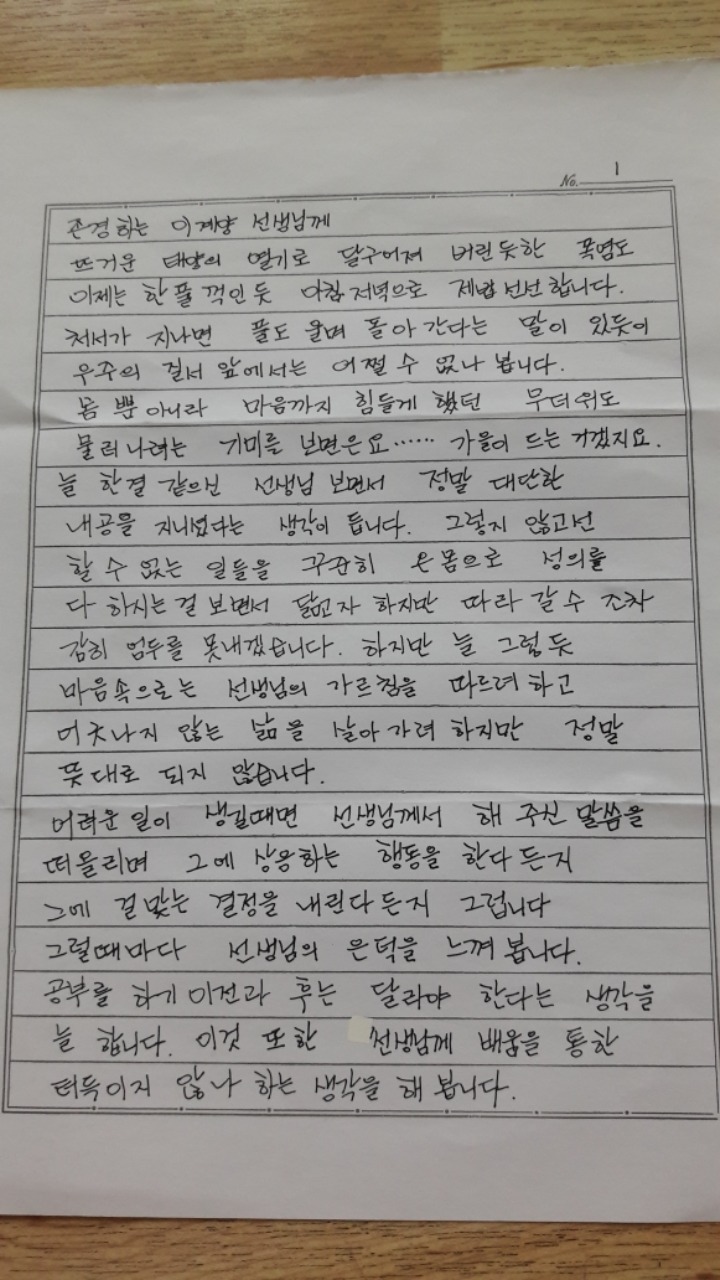 No. 1
존경하는 이계양 선생님께
뜨거운 태양의 열기로 달구어져 버린듯한 폭염도
이제는 한풀 꺽인듯 아침저녁으로 제법 선선합니다.
처서가 지나면 풀도 울며 돌아 간다는 말이 있듯이
우주의 질서 앞에서는 어쩔 수 없나 봅니다.
몸 뿐 아니라 마음까지 힘들게 했던 무더위도
물러나려는 기미를 보면은요…… 가을이 드는 거겠지요.
늘 한결 같으신 선생님 보면서 정말 대단한
내공을 지니셨다는 생각이 듭니다. 그렇지 않고선
할 수 없는 일들을 꾸준히 온몸으로 성의를
다 하시는걸 보면서 닮고자 하지만 따라 갈 수 조차
감히 엄두를 못내겠습니다. 하지만 늘 그렇듯
마음속으로는 선생님의 가르침을 따르려 하고
어긋나지 않는 삶을 살아 가려 하지만 정말
뜻대로 되지 않습니다.
어려운 일이 생길때면 선생님께서 해 주신 말씀을
떠올리며 그에 상응하는 행동을 한다든지
그에 걸맞는 결정을 내린다든지 그럽니다
그럴때마다 선생님의 은덕을 느껴 봅니다.
공부를 하기 이전과 후는 달라야 한다는 생각을
늘 합니다. 이것 또한 선생님께 배움을 통한
터득이지 않나 하는 생각을 해 봅니다.